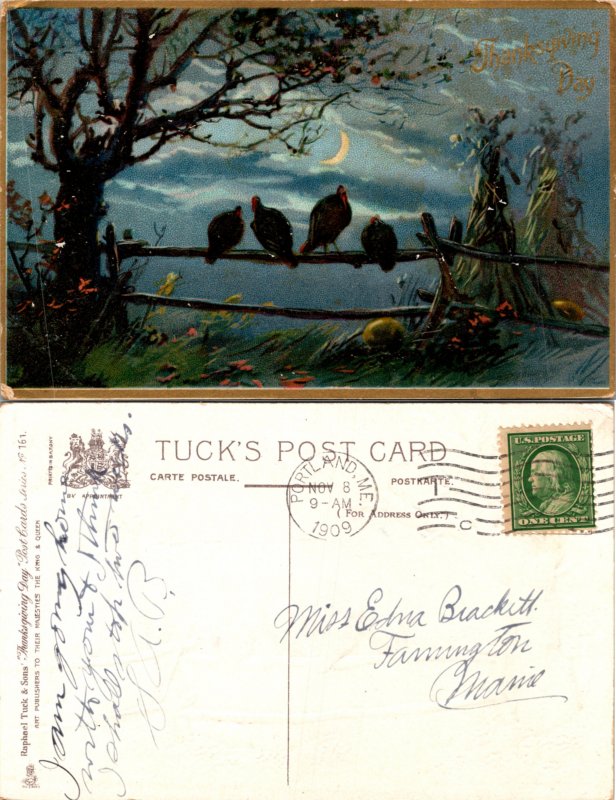 Thanksgiving
Day
TUCK'S POST CARD
CARTE POSTALE.
POSTKARTE.
( FOR ADDRESS ONLY. )
BY APPOINTMENT
PRINTED IN SAXONY
Raphael Tuck & Sons' "Thanksgiving Day" Post Cards Series Nº 161.
ART PUBLISHERS TO THEIR MAJESTIES THE KING & QUEEN
PORTLAND, ME.
NOV 8
9-AM
1909
1
C
U.S. POSTAGE
ONE CENT
Miss Edna Brackett.
Farmington
Maine
I am going home
with you & think
I shall stop two weeks.
A. B.